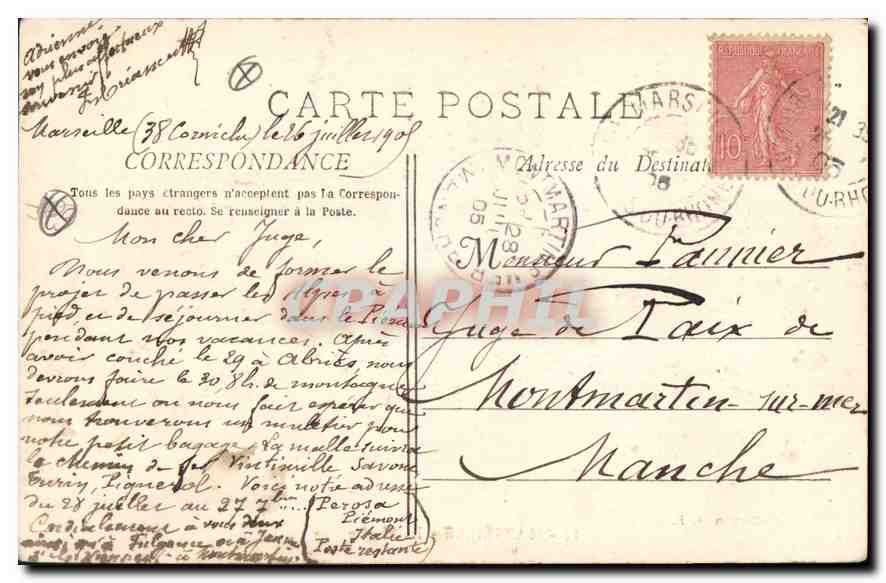 Adrienne
vous envoie
son plus affectueux
souvenir
CARTE POSTALE
REPUBLIQUE FRANÇAISE
10
Marseille (38 Corniche) le 26 juillet 1905
CORRESPONDANCE
Adresse du Destinat
Tous les pays étrangers n'acceptent pas la Correspon-
dance au recto. Se renseigner à la Poste.
Mon cher Juge,
Nous venons de former le
projet de passer les Alpes à
pied et de séjourner dans le Piém
pendant nos vacances. Après
avoir couché le 29 à Abriès, nous
devrons faire le 30, 8 h. de montagne
seulement on nous fait espérer que
nous trouverons un muletier pour
notre petit bagage. La malle suivra
le chemin de fer Vintimille Savone
Turin, Pignerol. Voici notre adresse
du 28 juillet au 27 7bre
Perosa
Piémont
Italie
Poste restante
Cordialement à vous deux
Monsieur Pannier
Juge de Paix de
Montmartin-sur-mer
Manche
MARS
DU-RHONE
05
MONTMARTIN-SUR-MER
28
JUIL
05
21 35
05
DU-RHO
CPAPHIL